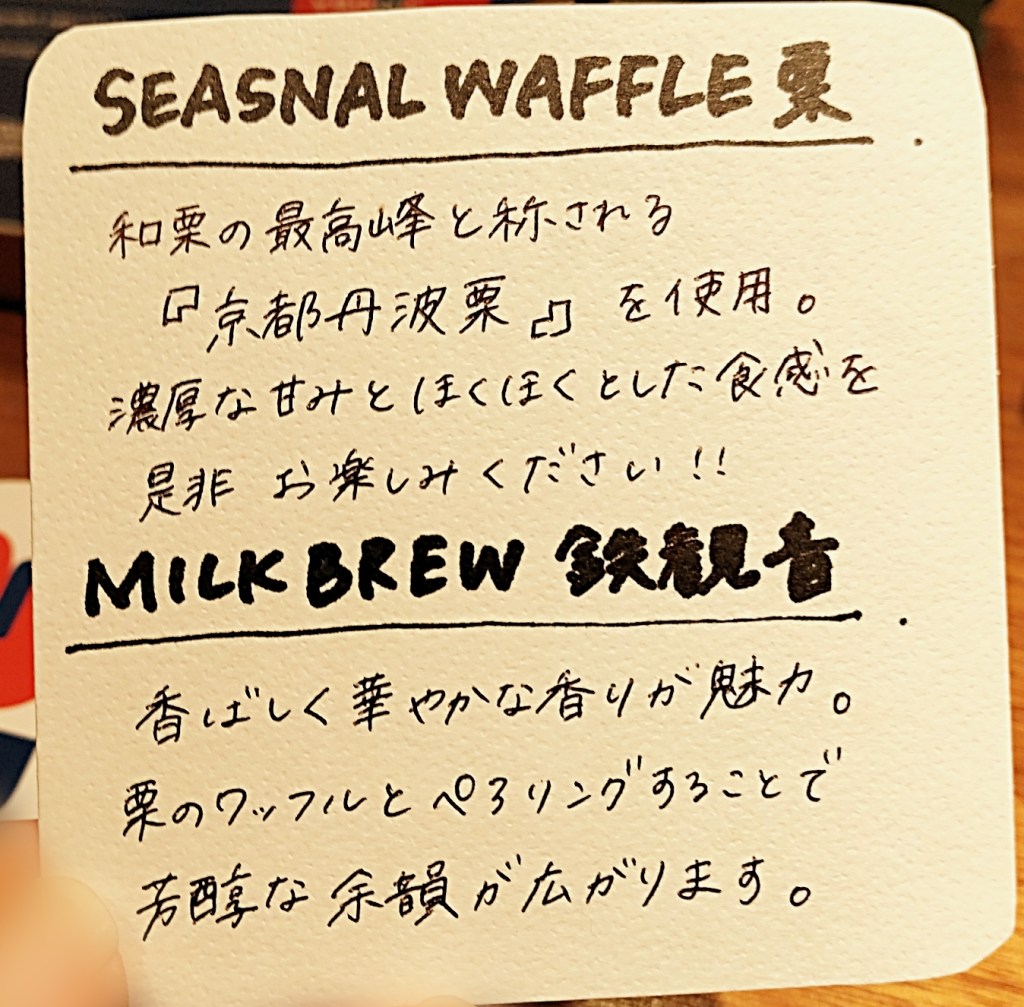 SEASNAL WAFFLE 栗
和栗の最高峰と称される
『京都丹波栗』を使用。
濃厚な甘みとほくほくとした食感を
是非 お楽しみください!!
MILK BREW 鉄観音
香ばしく華やかな香りが魅力。
栗のワッフルとペアリングすることで
芳醇な余韻が広がります。